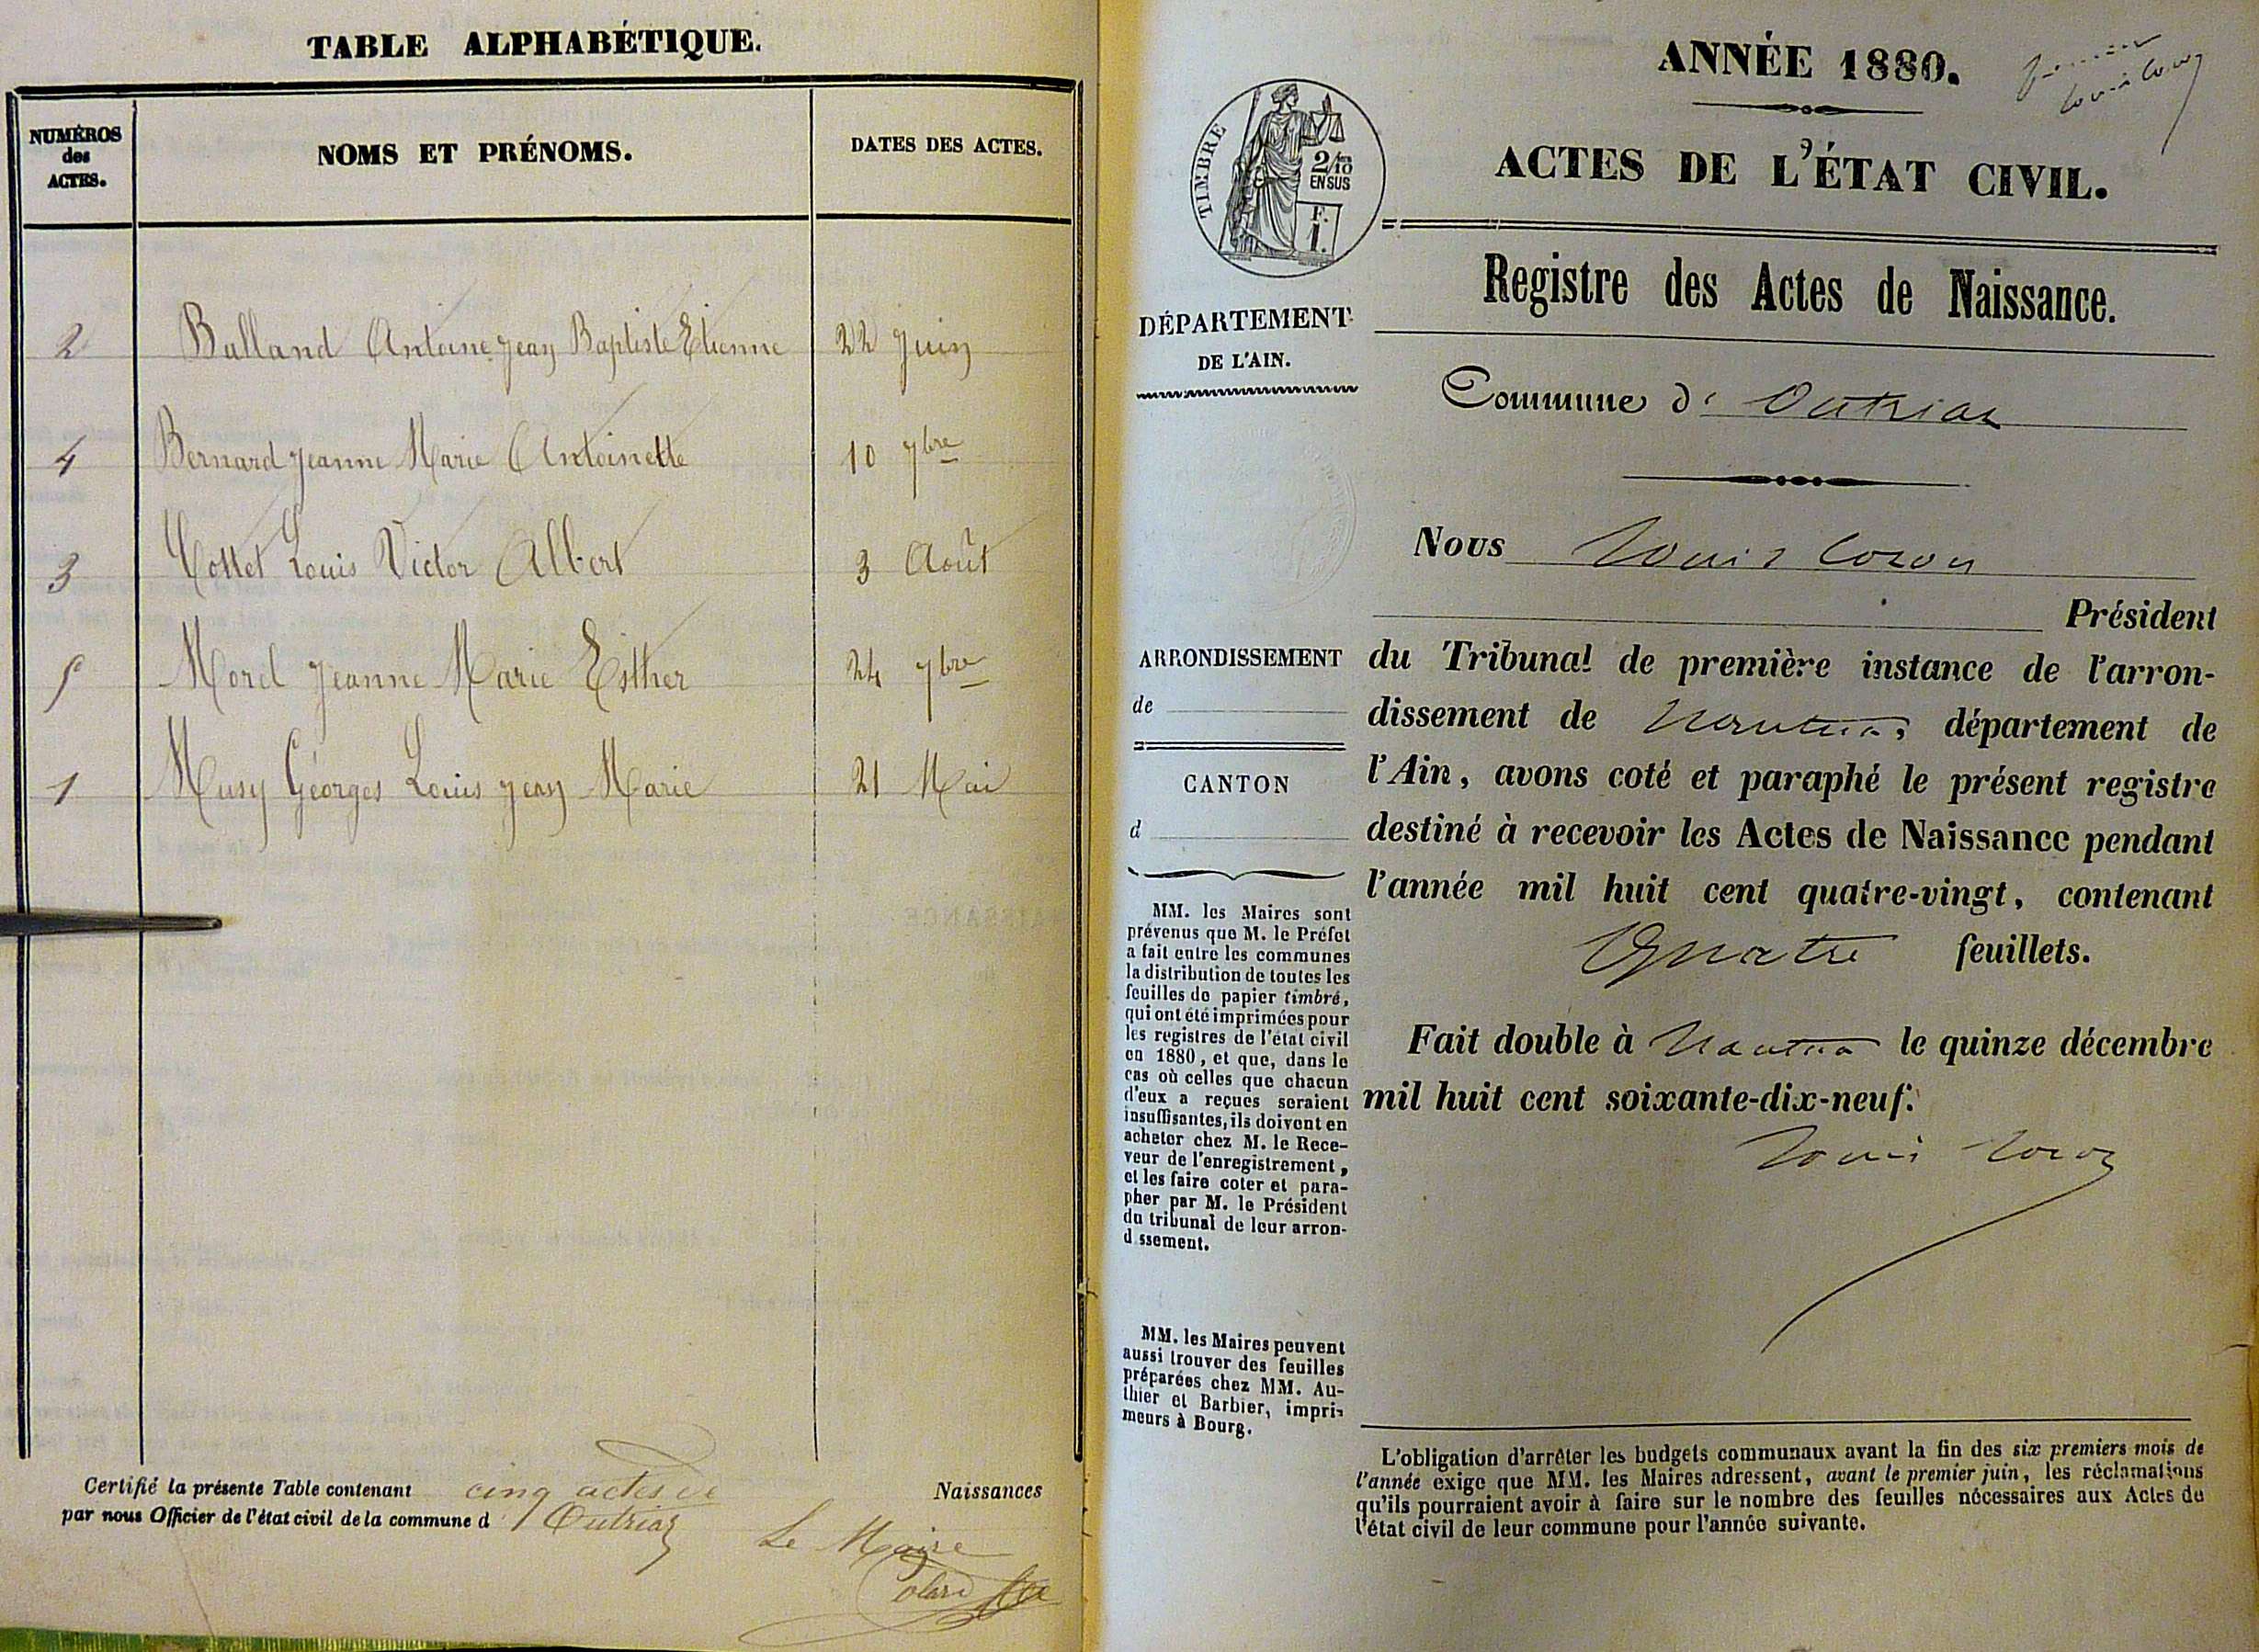 TABLE ALPHABÉTIQUE.
NUMÉROS
des
ACTES.
NOMS ET PRÉNOMS.
DATES DES ACTES.
2 Balland Antoine Jean Baptiste Etienne 22 Juin
4 Bernard Jeanne Marie Antoinette 10 7bre
3 Cottet Louis Victor Albert 3 Août
5 Morel Jeanne Marie Esther 24 7bre
1 Musy Géorges Louis Jean Marie 21 Mai
Certifié la présente Table contenant cinq actes de Naissances
par nous Officier de l'état civil de la commune d'Outriaz
Le Maire
ANNÉE 1880.
ACTES DE L'ÉTAT CIVIL.
TIMBRE
2/10
EN SUS
F.
1.
Registre des Actes de Naissance.
DÉPARTEMENT
DE L'AIN.
Commune d'Outriaz
Nous Louis Coron
Président
du Tribunal de première instance de l'arron-
dissement de Nantua, département de
l'Ain, avons coté et paraphé le présent registre
destiné à recevoir les Actes de Naissance pendant
l'année mil huit cent quatre-vingt, contenant
Quatre feuillets.
Fait double à Nantua le quinze décembre
mil huit cent soixante-dix-neuf.
Louis Coron
ARRONDISSEMENT
de
CANTON
d
MM. les Maires sont
prévenus que M. le Préfet
a fait entre les communes
la distribution de toutes les
feuilles de papier timbré,
qui ont été imprimées pour
les registres de l'état civil
en 1880, et que, dans le
cas où celles que chacun
d'eux a reçues seraient
insuffisantes, ils doivent en
acheter chez M. le Rece-
veur de l'enregistrement,
et les faire coter et para-
pher par M. le Président
du tribunal de leur arron-
d ssement.
MM. les Maires peuvent
aussi trouver des feuilles
préparées chez MM. Au-
thier et Barbier, impri-
meurs à Bourg.
L'obligation d'arrêter les budgets communaux avant la fin des six premiers mois de
l'année exige que MM. les Maires adressent, avant le premier juin, les réclamations
qu'ils pourraient avoir à faire sur le nombre des feuilles nécessaires aux Actes de
l'état civil de leur commune pour l'année suivante.